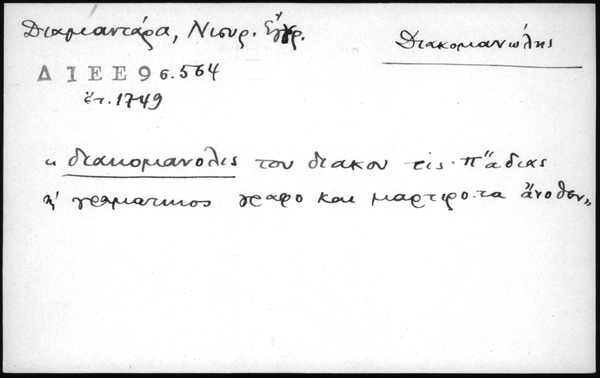 Διαμαντάρα, Νισυρ. Εγγρ.
Διακομανώλης
ΔΙΕΕ 9 σ. 564
ἔτ. 1749
" διακομανολις του διακου τις παδιας
κἀ γραματικος γραφο και μαρτιρο τα ἄνοθεν "